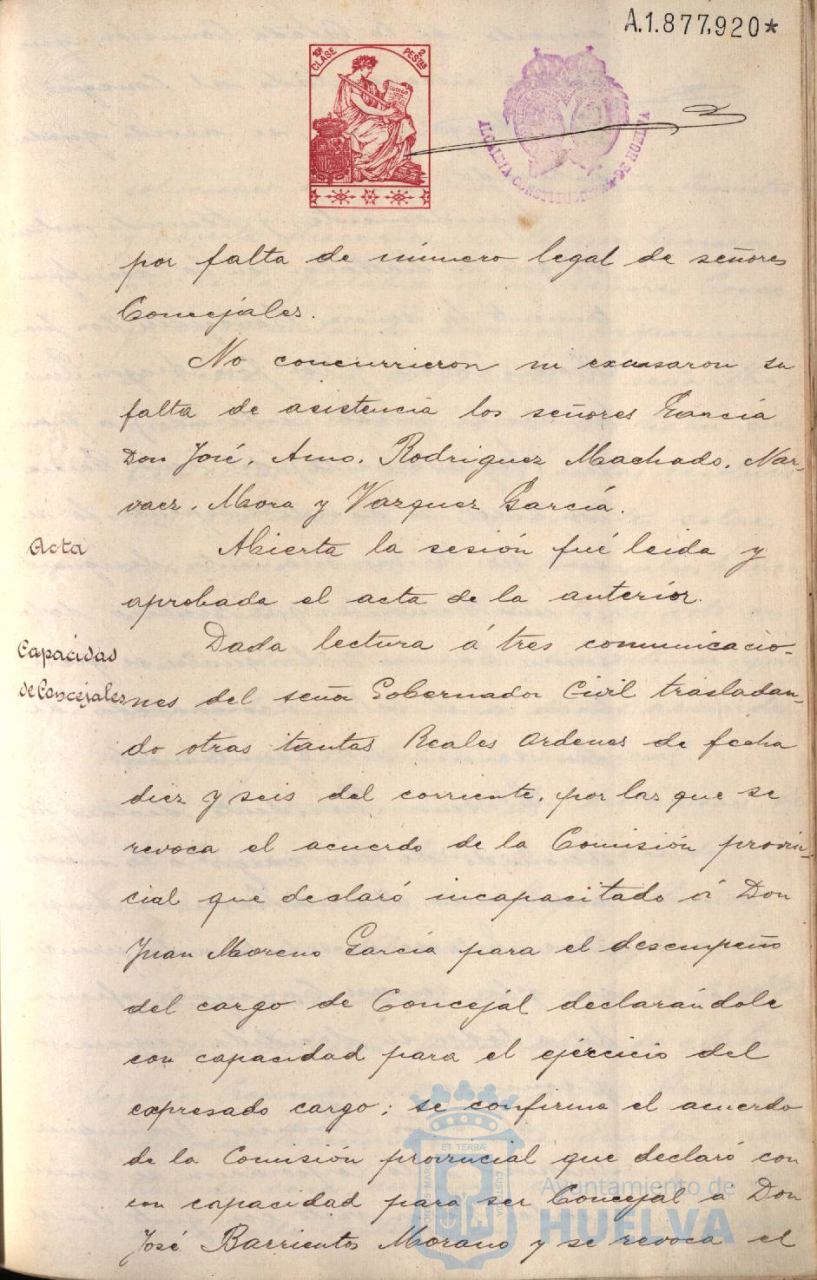 A.1.877,920*
10ª CLASE 2 PESTAS
ALCALDIA CONSTITUCIONAL DE HUELVA
por falta de número legal de señores
Concejales.
No concurrieron ni excusaron su
falta de asistencia los señores García
Don José, Amo, Rodriguez Machado, Nar-
vaez, Mora y Vazquez García.
Acta
Abierta la sesión fué leida y
aprobada el acta de la anterior.
Capacidad
de Concejales
Dada lectura á tres comunicacio-
nes del señor Gobernador Civil trasladan-
do otras tantas Reales Ordenes de fecha
diez y seis del corriente, por las que se
revoca el acuerdo de la Comisión provin-
cial que declaró incapacitado á Don
Juan Moreno García para el desempeño
del cargo de Concejal declarándole
con capacidad para el ejercicio del
expresado cargo; se confirma el acuerdo
de la Comisión provincial que declaró con
con capacidad para ser Concejal a Don
José Barrientos Morano y se revoca el
Ayuntamiento de
HUELVA